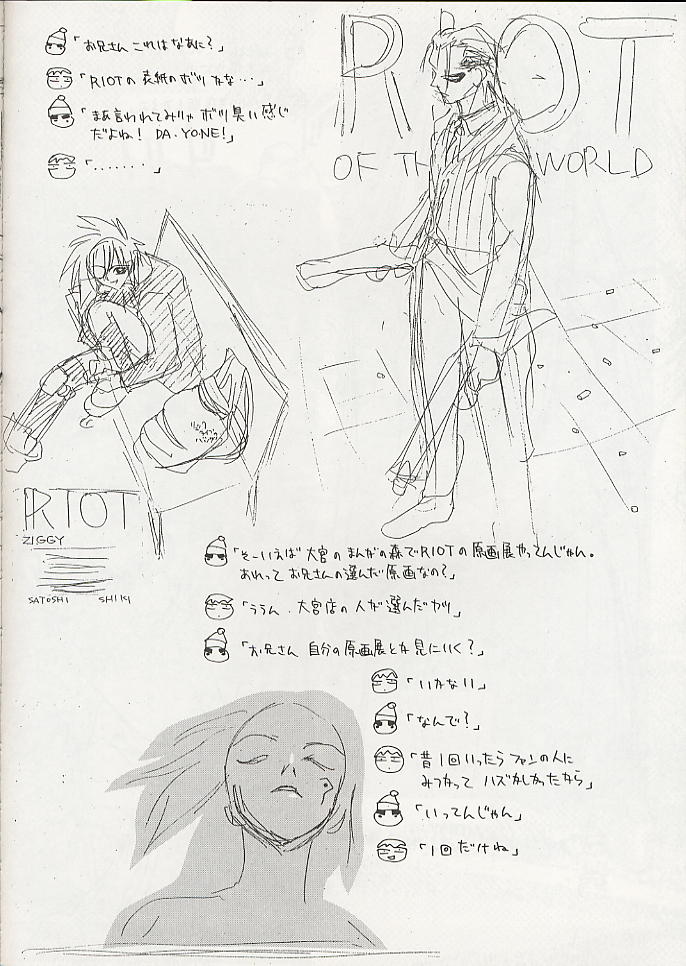 「お兄さん これはなあに？」
「RIOTの表紙のボツかな・・・」
「まあ言われてみりゃボツ臭い感じ
だよね！ DA・YONE!」
「・・・・・・・」
RIOT
OF THE WORLD
RIOT
ZIGGY
SATOSHI SHIKI
「そーいえば 大宮のまんがの森でRIOTの原画展やってんじゃん。
あれって お兄さんの選んだ原画なの？」
「ううん、大宮店の人が選んだヤツ」
「お兄さん 自分の原画展とか見にいく？」
「いかない」
「なんで？」
「昔1回いったらファンの人に
みつかって ハズかしかったから」
「いってんじゃん」
「1回だけね」